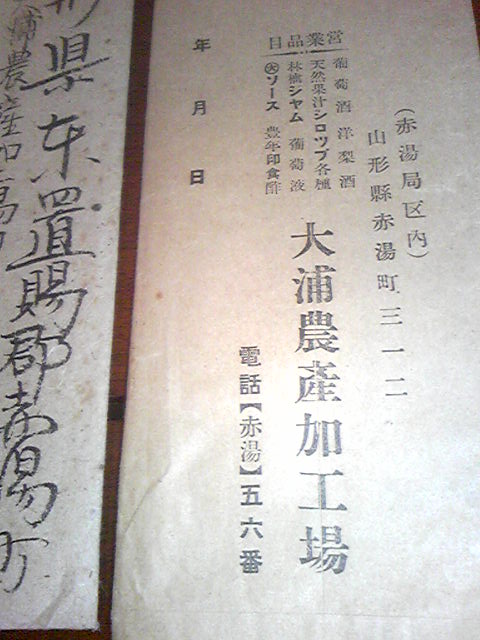 (赤湯局区内)
山形縣赤湯町三一二
大浦農產加工場
電話【赤湯】五六番
営業品目
葡萄酒 洋梨酒
天然果汁シロップ各種
林檎シヤム 葡萄液
㊅ソース 豊年印食酢
年 月 日
形県东置賜郡赤湯町
浦農産加工場